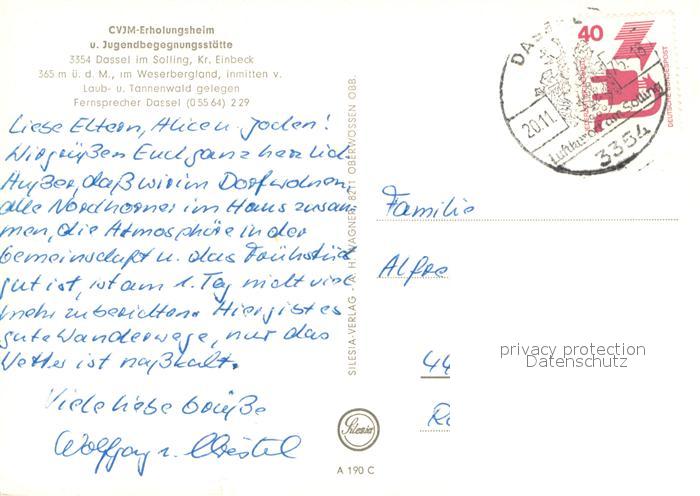 CVJM-Erholungsheim
u. Jugendbegegnungsstätte
3354 Dassel im Solling, Kr. Einbeck
365 m ü. d. M., im Weserbergland, inmitten v.
Laub- u. Tannenwald gelegen
Fernsprecher Dassel (0 55 64) 2 29
Liebe Eltern, Alice u. Jochen!
Wir grüßen Euch ganz herzlich.
Außer, daß wir im Dorf wohnen,
alle Nordhorner im Haus zusam-
men, die Atmosphäre in der
Gemeinschaft u. das Frühstück
gut ist, ist am 1. Tag nicht viel
mehr zu berichten. Hier gibt es
gute Wanderwege, nur das
Wetter ist naßkalt.
Viele liebe Grüße
Wolfgang u. Christel
SILESIA-VERLAG · A. H. WAGNER, 8211 OBERWÖSSEN OBB.
Silesia
A 190 C
40
DEUTSCHE BUNDESPOST
DASSEL
20.11.
Luftkurort am Solling
3354
Familie
Alfre
44
privacy protection
Datenschutz